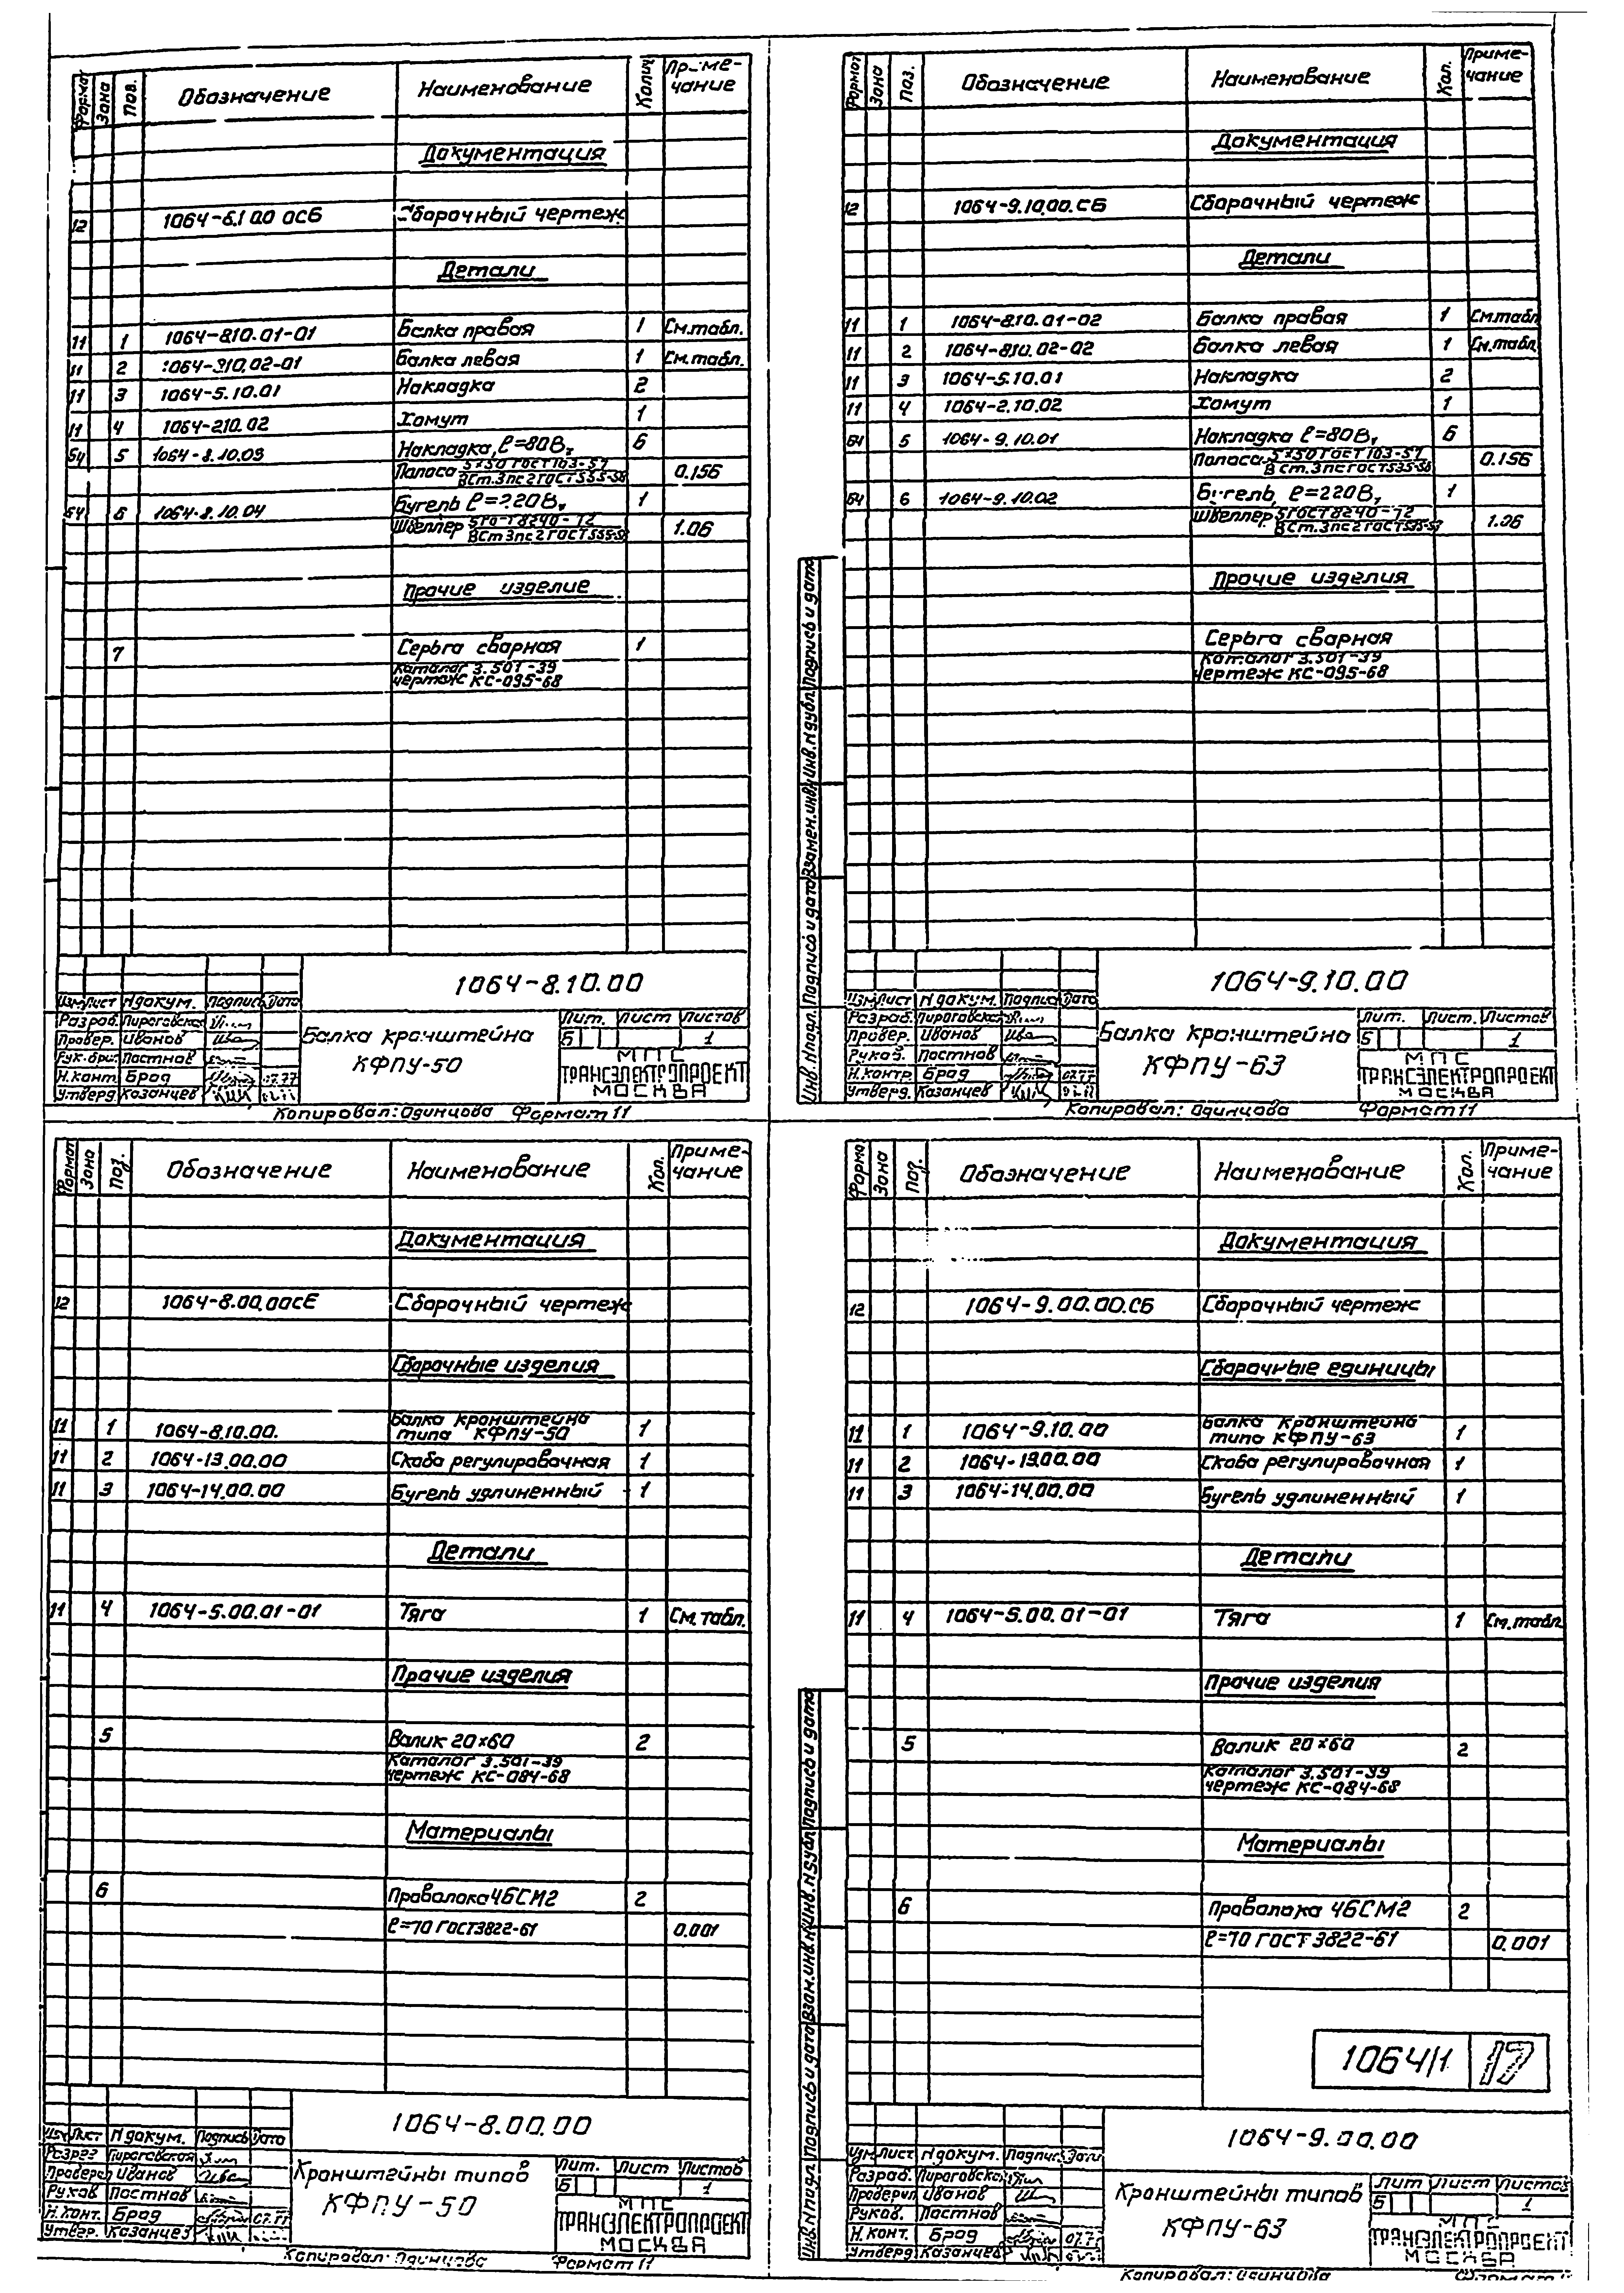 Формат Зона Поз. Обозначение Наименование Колич Приме-
чание
Документация
12 1064-8.10.00СБ Сборочный чертеж
Детали
11 1 1064-810.01-01 Балка правая 1 См.табл.
11 2 1064-810.02-01 Балка левая 1 См.табл.
11 3 1064-5.10.01 Накладка 2
11 4 1064-210.02 Хомут 1
54 5 1064-8.10.03 Накладка, ℓ=80 6
Полоса 5×50 ГОСТ103-57
ВСт.3пс2ГОСТ535-58 0.156
54 6 1064-8.10.04 Бугель ℓ=220 1
Швеллер ВСт.3пс2ГОСТ535-58 1.06
Прочие изделие
7 Серьга сварная 1
каталог 3.501-39
чертеж КС-095-68
1064-8.10.00
Изм Лист № докум. Подпись Дата
Разраб. Пироговская
Провер. Иванов
Рук.бриг Постнов
Н.конт. Брод 07.77
Утверд. Казанцев
Балка кронштейна
КФПУ-50
Лит. Лист Листов
Б 1
МПС
ТРАНСЭЛЕКТРОПРОЕКТ
МОСКВА
Копировал: Одинцова Формат 11
Формат Зона Поз. Обозначение Наименование Кол. Приме-
чание
Документация
12 1064-9.10.00.СБ Сборочный чертеж
Детали
11 1 1064-810.01-02 Балка правая 1 См.табл
11 2 1064-810.02-02 Балка левая 1 См.табл
11 3 1064-5.10.01 Накладка 2
11 4 1064-2.10.02 Хомут 1
64 5 1064-9.10.01 Накладка ℓ=80 6
Полоса 5×50 ГОСТ 103-57
ВСт.3пс ГОСТ535-58 0.156
64 6 1064-9.10.02 Бугель, ℓ=220 1
Швеллер 5ГОСТ8240-72
ВСт.3пс2ГОСТ535-58 1.06
Прочие изделия
Серьга сварная
каталог 3.501-39
чертеж КС-095-68
1064-9.10.00
Изм Лист № докум. Подпись Дата
Разраб. Пироговская
Провер. Иванов
Руков. Постнов
Н.контр Брод 07.77
Утверд. Казанцев
Балка кронштейна
КФПУ-63
Лит. Лист. Листов
Б 1
МПС
ТРАНСЭЛЕКТРОПРОЕКТ
МОСКВА
Инв.№подл. Подпись и дата Взамен.инв.№ Инв.№дубл. Подпись и дата
Копировал: Одинцова Формат 11
Формат Зона Поз. Обозначение Наименование Кол. Приме-
чание
Документация
12 1064-8.00.00СБ Сборочный чертеж
Сборочные изделия
11 1 1064-8.10.00. Балка кронштейна
типа КФПУ-50 1
11 2 1064-13.00.00 Скоба регулировочная 1
11 3 1064-14.00.00 Бугель удлиненный 1
Детали
11 4 1064-5.00.01-01 Тяга 1 См.табл.
Прочие изделия
5 Валик 20×60 2
Каталог 3.501-39
чертеж КС-084-68
Материалы
6 Проволока 4БСМ2 2
ℓ=70 ГОСТ3822-61 0.001
1064-8.00.00
Изм Лист № докум. Подпись Дата
Разраб Пироговская
Проверил Иванов
Руков Постнов
Н.конт. Брод 07.77
Утвер. Казанцев
Кронштейны типов
КФПУ-50
Лит. Лист Листов
Б 1
МПС
ТРАНСЭЛЕКТРОПРОЕКТ
МОСКВА
Копировал: Одинцова Формат 11
Формат Зона Поз. Обозначение Наименование Кол. Приме-
чание
Документация
12 1064-9.00.00.СБ Сборочный чертеж
Сборочные единицы
11 1 1064-9.10.00 Балка кронштейна
типа КФПУ-63 1
11 2 1064-13.00.00 Скоба регулировочная 1
11 3 1064-14.00.00 Бугель удлиненный 1
Детали
11 4 1064-5.00.01-01 Тяга 1 См.табл
Прочие изделия
5 Валик 20×60 2
Каталог 3.501-39
чертеж КС-084-68
Материалы
6 Проволока 4БСМ2 2
ℓ=70 ГОСТ3822-61 0.001
1064/1 17
1064-9.00.00
Изм Лист № докум. Подпись Дата
Разраб. Пироговская
Проверил Иванов
Руков. Постнов
Н.конт. Брод 07.77
Утверд Казанцев
Кронштейны типов
КФПУ-63
Лит Лист Листов
Б 1
МПС
ТРАНСЭЛЕКТРОПРОЕКТ
МОСКВА
Инв.№подл. Подпись и дата Взам.инв.№ Инв.№дубл Подпись и дата
Копировал: Одинцова Формат